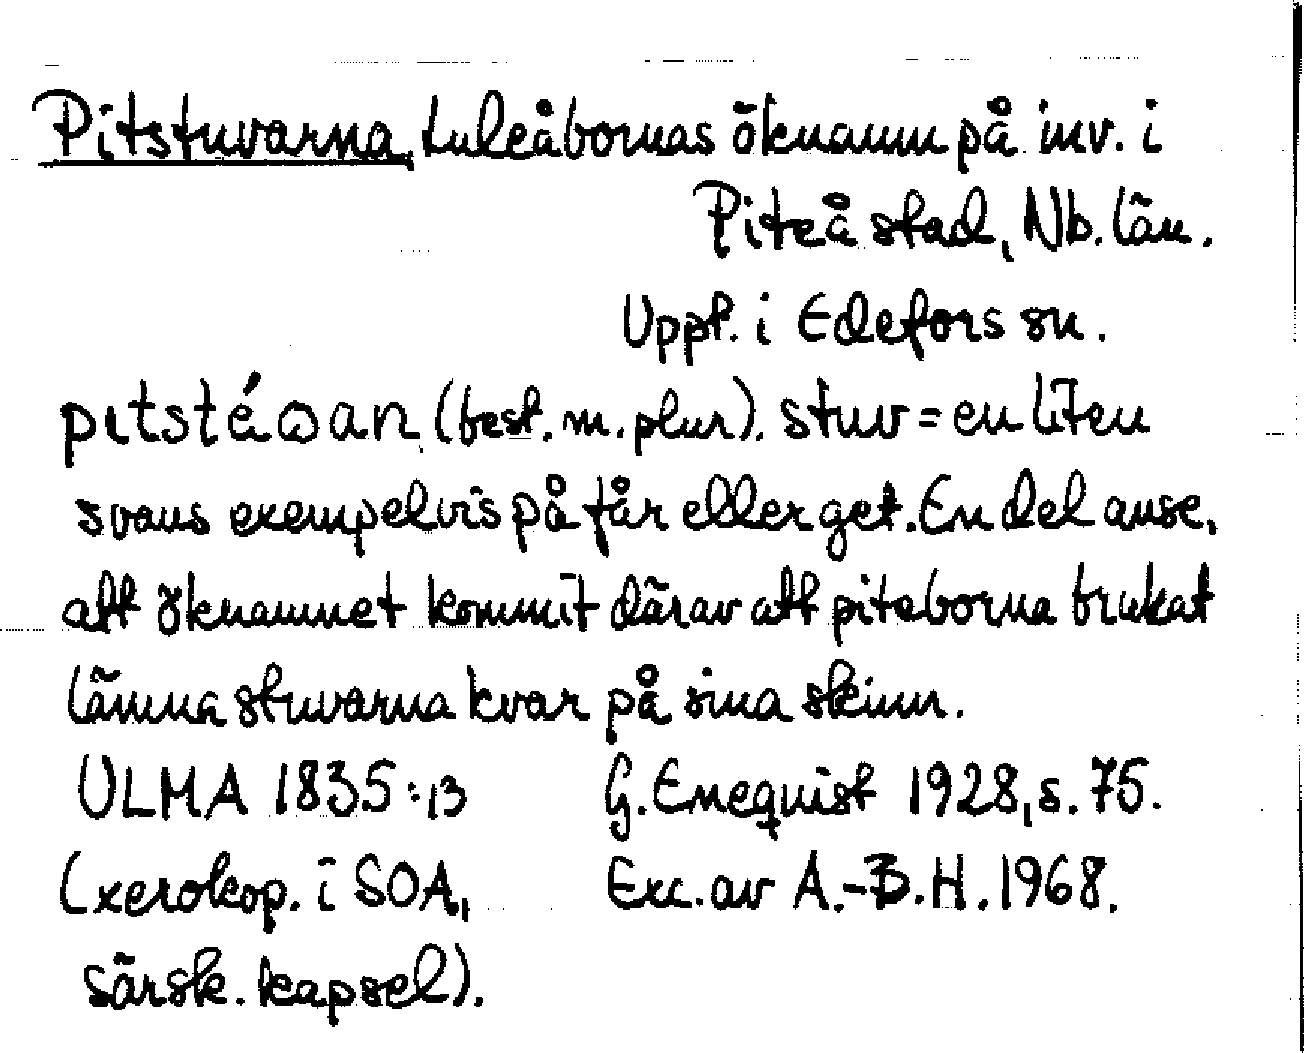 Pitstuvarna, Luleåbornas öknamn på inv. i
Piteå stad, Nb. län.
Uppt. i Edefors sn.
pɩtstéωan (best. m. plur). stuv = en liten
svans exempelvis på får eller get. En del anse,
att öknamnet kommit därav att piteborna brukat
lämna stuvarna kvar på sina skinn.
ULMA 1835:13 G. Enequist 1928, s. 75.
(xerokop. i SOA, Exc. av A.-B. H. 1968.
särsk. kapsel).